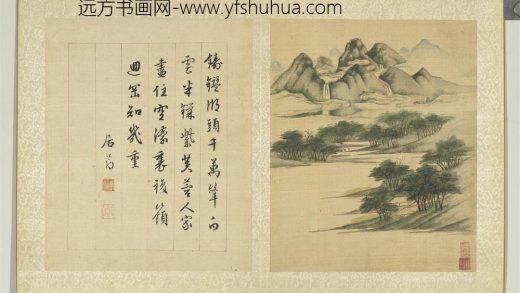 远方书画网-www.yfshuhua.com
頭千萬峰白
雲半鎖紫芙蓉人家
盡住空濛裏複嶺
迴知幾重
居節